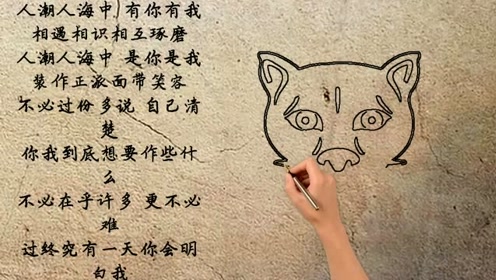 人潮人海中 有你有我
相遇相识相互琢磨
人潮人海中 是你是我
装作正派面带笑容
不必过份多说 自己清
楚
你我到底想要作些什
么
不必在乎许多 更不必
难
过终究有一天你会明
白我